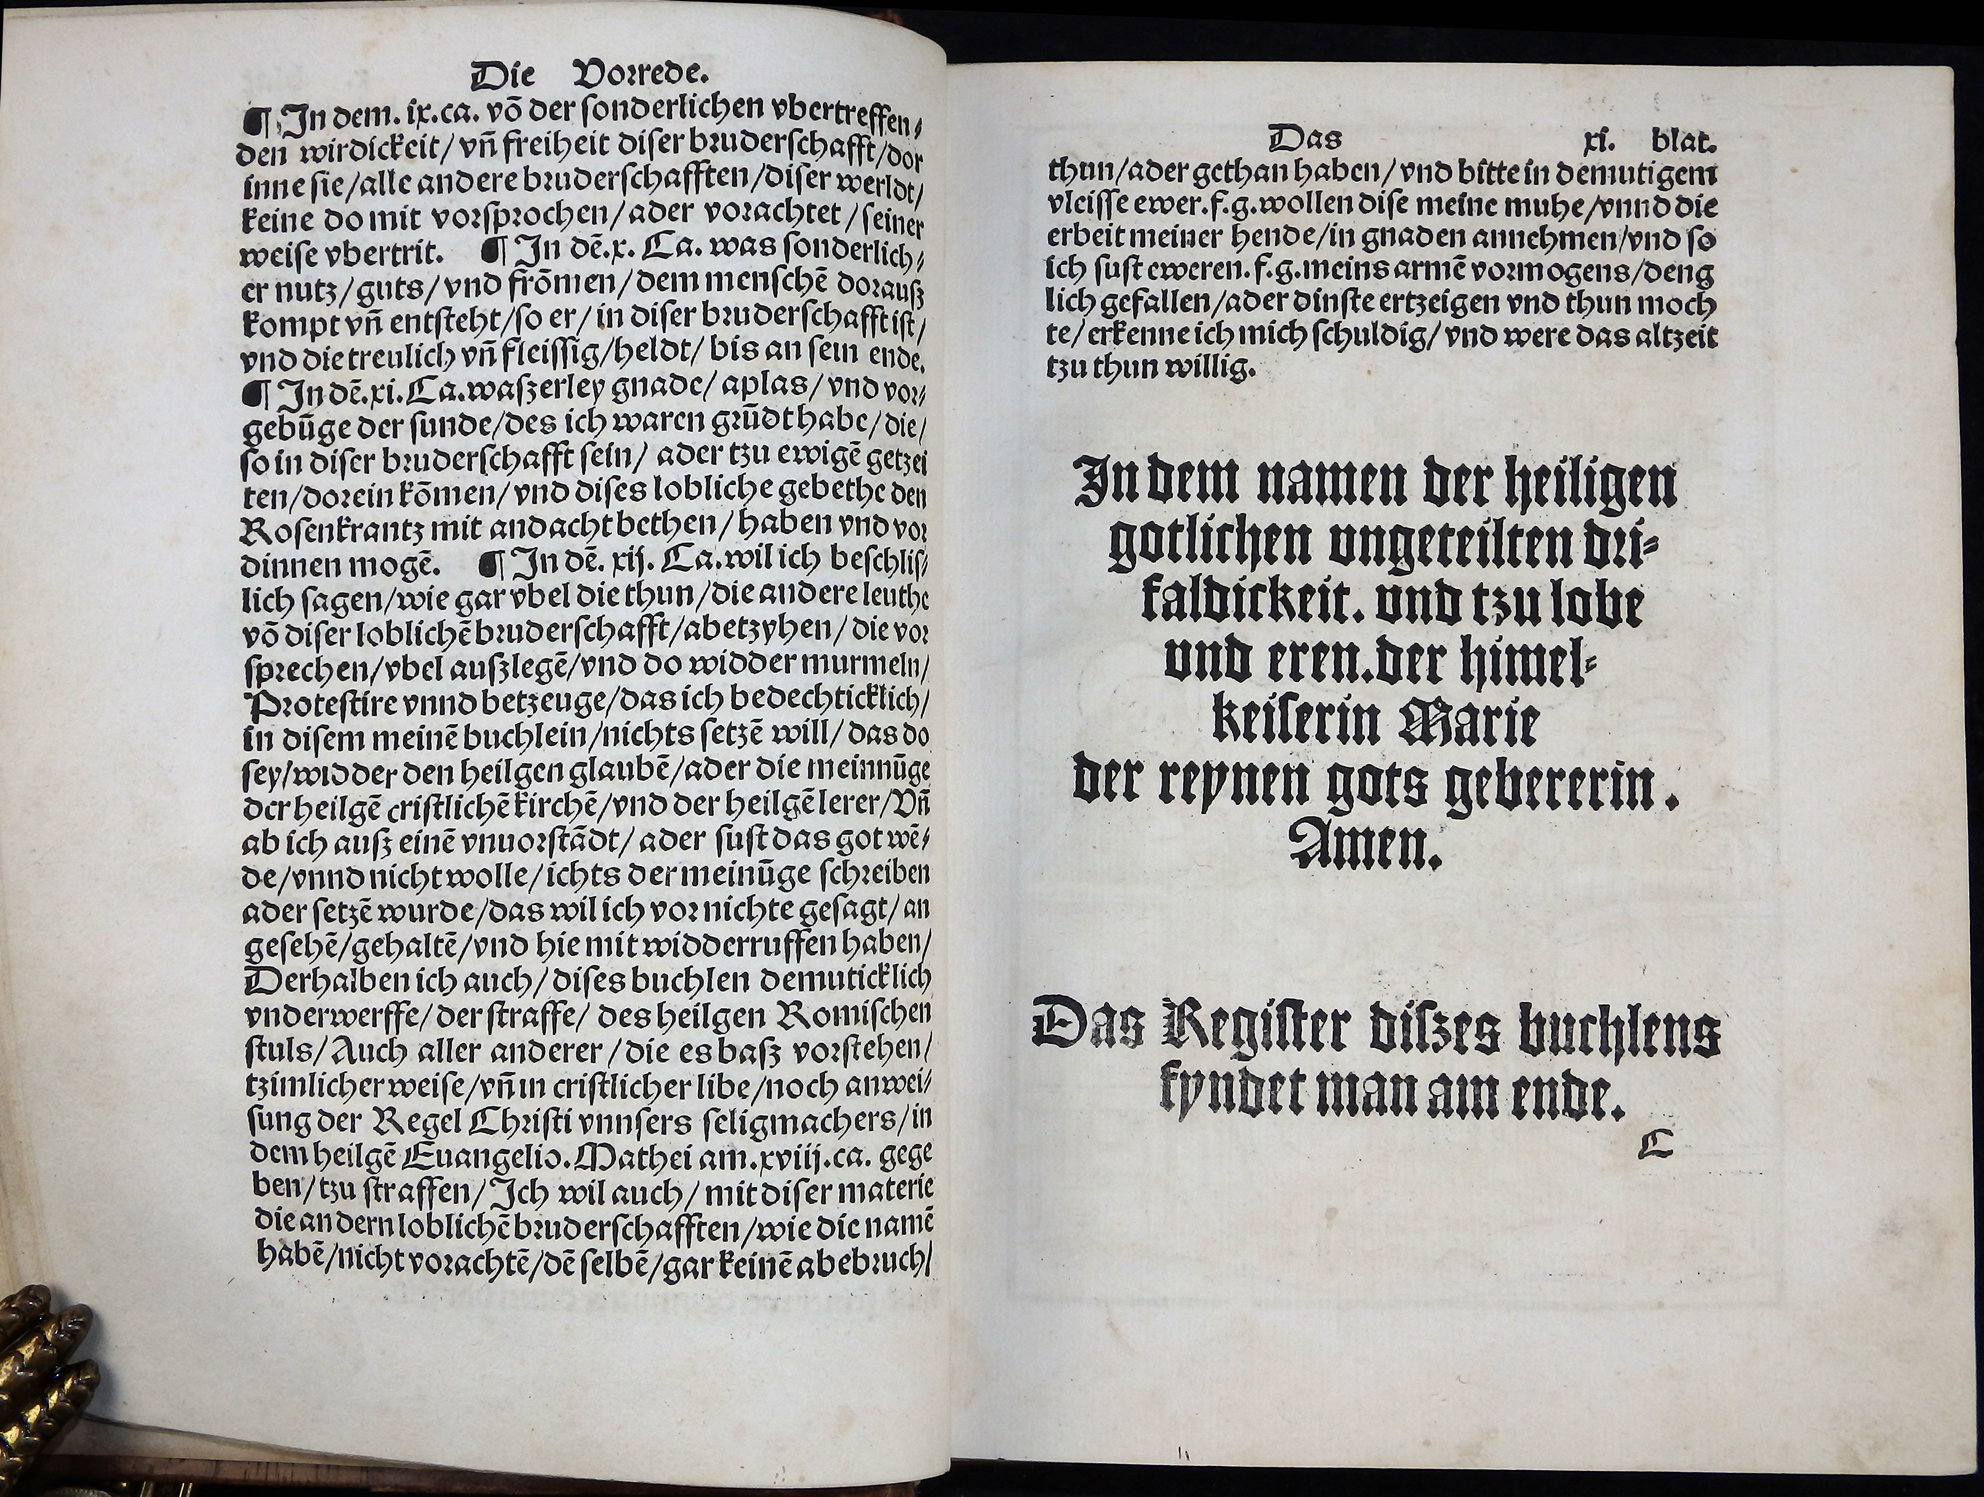 Die Vorrede.
¶ In dem. ix. ca. võ der sonderlichen vbertreffen⸗
den wirdickeit/ vñ freiheit diser bruderschafft/dor
inne sie/alle andere bruderschafften/diser werldt/
keine do mit vorsprochen/ ader vorachtet/ seiner
weise vbertrit. ¶ In dẽ.x. Ca. was sonderlich⸗
er nutz/ guts/ vnd frõmen/ dem menschẽ dorauß
kompt vñ entsteht/so er/ in diser bruderschafft ist/
vnd die treulich vñ fleissig/heldt/ bis an sein ende.
¶ In dẽ.xi. Ca.waßerley gnade/ aplas/ vnd vor⸗
gebũge der sunde/des ich waren grũdt habe/ die/
so in diser bruderschafft sein/ ader tzu ewigẽ getzei
ten/dorein kõmen/vnd dises lobliche gebethe den
Rosenkrantz mit andacht bethen/ haben vnd vor
dinnen mogẽ. ¶ In dẽ. xij. Ca.wil ich beschlis⸗
lich sagen/wie gar vbel die thun/die andere leuthe
võ diser loblichẽ bruderschafft/abetzyhen/ die vor
sprechen/vbel außlegẽ/vnd do widder murmeln/
Protestire vnnd betzeuge/das ich bedechticklich/
in disem meinẽ buchlein/nichts setzẽ will/ das do
sey/widder den heilgen glaubẽ/ader die meinnũge
der heilgẽ cristlichẽ kirchẽ/vnd der heilgẽ lerer/Vñ
ab ich auß einẽ vnuorstãdt/ ader sust das got wẽ⸗
de/vnnd nicht wolle/ichts der meinũge schreiben
ader setzẽ wurde/das wil ich vor nichte gesagt/ an
gesehẽ/gehaltẽ/vnd hie mit widderruffen haben/
Derhalben ich auch/ dises buchlen demuticklich
vnderwerffe/ der straffe/ des heilgen Romischen
stuls/Auch aller anderer/die es baß vorstehen/
tzimlicher weise/vñ in cristlicher libe/noch anwei⸗
sung der Regel Christi vnnsers seligmachers/in
dem heilgẽ Euangelio.Mathei am.xviij.ca. gege
ben/tzu straffen/ Ich wil auch/ mit diser materie
die andern loblichẽ bruderschafften/wie die namẽ
habẽ/nicht vorachtẽ/dẽ selbẽ/gar keinẽ abebruch/
Das xi. blat.
thun/ader gethan haben/ vnd bitte in demutigem
vleisse ewer.f.g.wollen dise meine muhe/vnnd die
erbeit meiner hende/in gnaden annehmen/vnd so
ich sust eweren.f.g.meins armẽ vormogens/deng
lich gefallen/ader dinste ertzeigen vnd thun moch
te/ erkenne ich mich schuldig/ vnd were das altzeit
tzu thun willig.
In dem namen der heiligen
gotlichen vngeteilten dri⸗
faldickeit. vnd tzu lobe
vnd eren.der himel⸗
keiserin Marie
der reynen gots gebererin.
Amen.
Das Register diszes buchlens
fyndet man am ende.
C